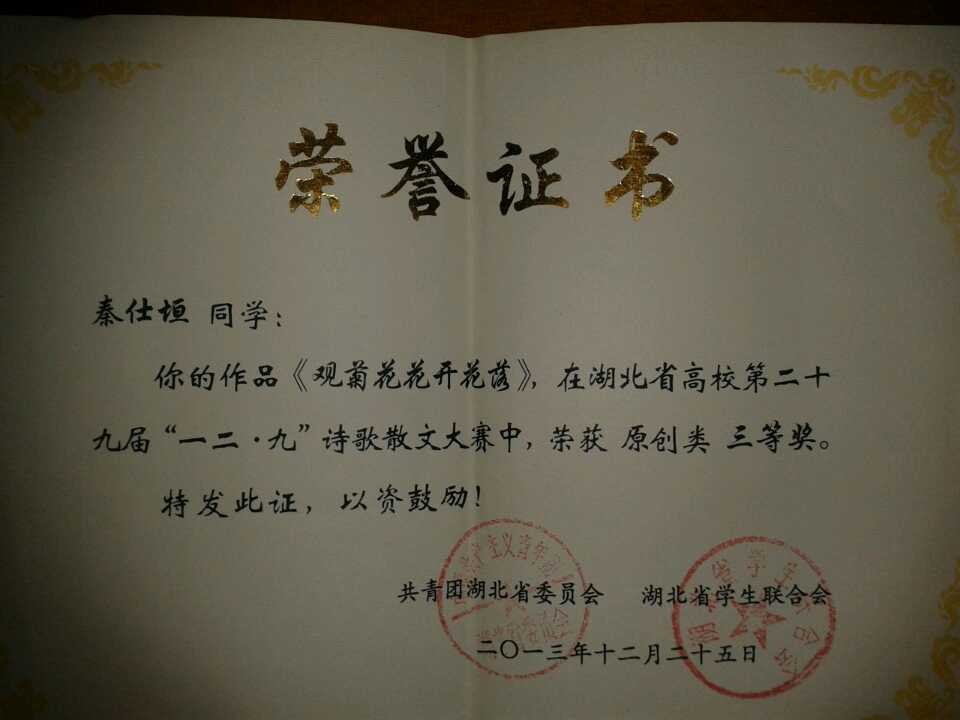 荣誉证书
秦仕垣 同学：
你的作品《观菊花花开花落》，在湖北省高校第二十
九届“一二·九”诗歌散文大赛中，荣获 原创类 三等奖。
特发此证，以资鼓励！
共青团湖北省委员会 湖北省学生联合会
二〇一三年十二月二十五日